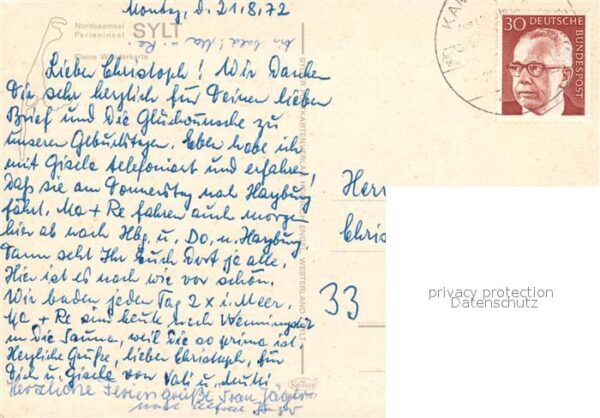 Montag, d. 21.8.72
Nordseeinsel
Ferieninsel SYLT
Kleine Wanderkarte
bis bald! Ma u. Re.
Lieber Christoph! Wir danken
Dir sehr herzlich für Deinen lieben
Brief und die Glückwünsche zu
unseren Geburtstagen. Eben habe ich
mit Gisela telefoniert und erfahren,
daß sie am Donnerstag nach Harzburg
fährt. Ma + Re fahren auch morgen
hier ab nach Hbg. u. Do. n. Harzburg.
Dann seht Ihr Euch dort ja alle.
Hier ist es nach wie vor schön.
Wir baden jeden Tag 2 x i. Meer.
Ma + Re sind heute nach Wenningst.
in die Sauna, weil die so prima ist.
Herzliche Grüße, lieber Christoph, für
Dich u. Gisela von Vati u. Mutti
Herzliche Feriengrüße Frau Jäger
und
WESTERLAND
KAM
30 DEUTSCHE
BUNDESPOST
Herr
Chris
33
privacy protection
Datenschutz